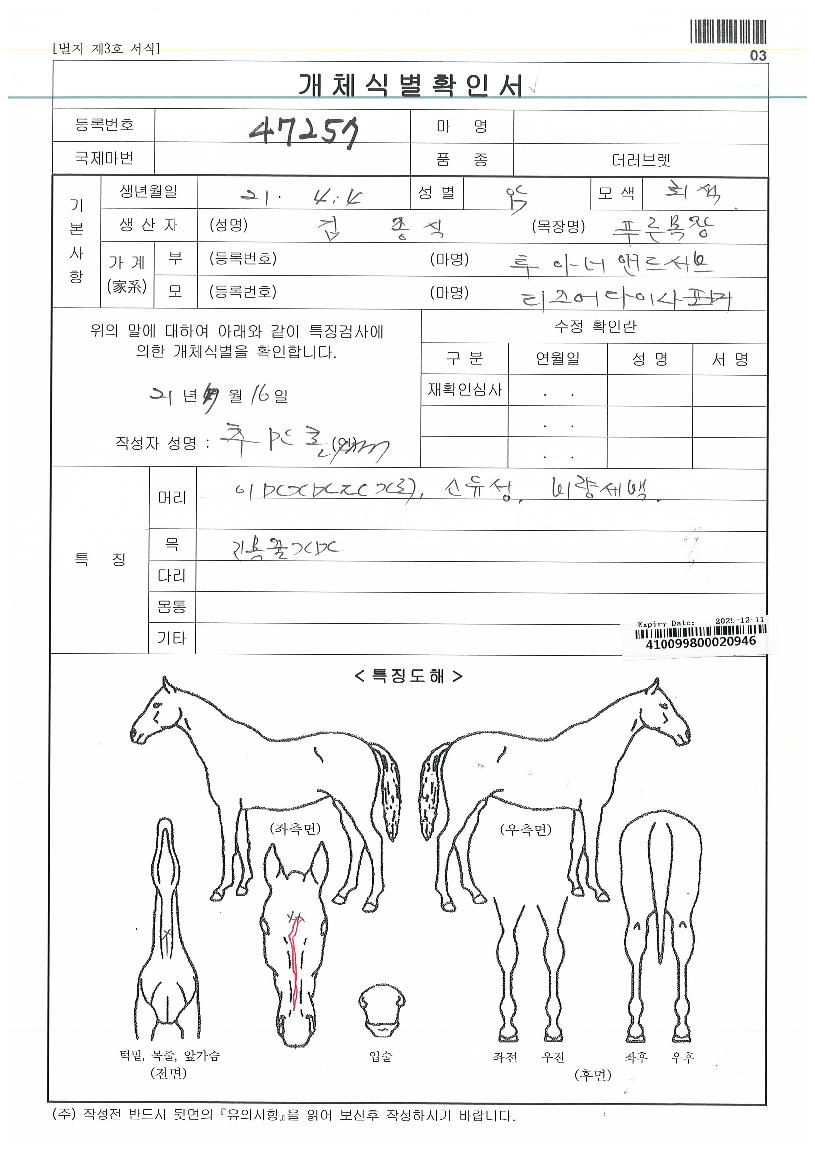 [별지 제3호 서식]
03
개체식별확인서
등록번호 47257 마 명
국제마번 품 종 더러브렛
기본사항
생년월일 21. 4. 4 성 별 암 모 색 회색
생 산 자 (성명) 김 종 식 (목장명) 푸른목장
가 계 (家系) 부 (등록번호) (마명) 투 아너 앤드서브
모 (등록번호) (마명)
위의 말에 대하여 아래와 같이 특징검사에
의한 개체식별을 확인합니다.
21 년 월 16 일
작성자 성명 :
수정 확인란
구 분 연월일 성 명 서 명
재확인심사 . .
. .
. .
특 징
머리
목
다리
몸통
기타
Expiry Date: 2025-12-11
410099800020946
< 특징도해 >
(좌측면) (우측면)
턱밑, 목줄, 앞가슴 입술 좌전 우전 좌후 우후
(전면) (후면)
(주) 작성전 반드시 뒷면의 『유의사항』을 읽어 보신후 작성하시기 바랍니다.